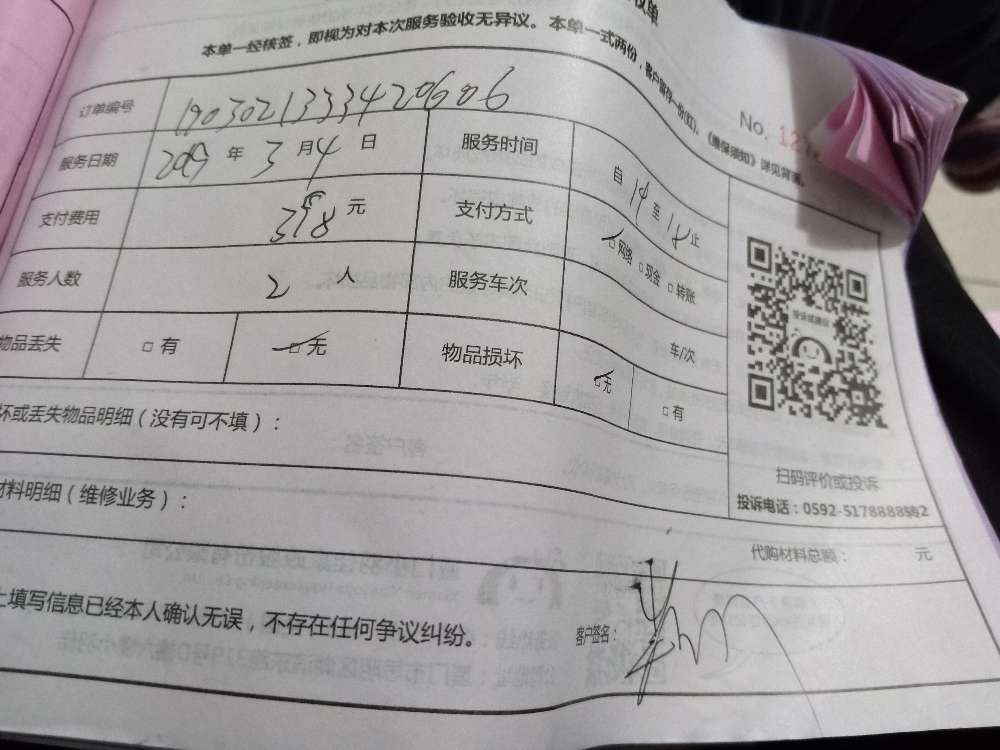 单
本单一经核签，即视为对本次服务验收无异议。本单一式两份，客户留存一份(红)，《维保须知》详见背面。
No.
订单编号 190302133342060 6
服务日期 2019年3月4日 服务时间 自14至18止
支付费用 398元 支付方式 ☑网络 □现金 □转账
服务人数 2人 服务车次 车/次
物品丢失 □有 ☑无 物品损坏 ☑无 □有
坏或丢失物品明细（没有可不填）：
材料明细（维修业务）：
扫码评价或投诉
投诉电话：0592-5178888转2
代购材料总额： 元
上填写信息已经本人确认无误，不存在任何争议纠纷。
客户签名：